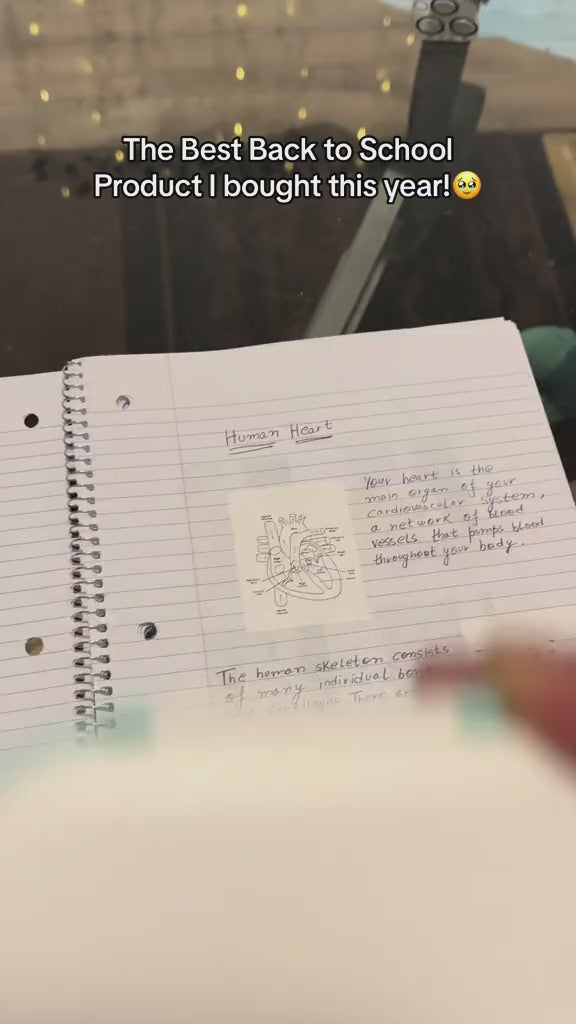 The Best Back to School
Product I bought this year!🥹
Human Heart
Your heart is the
main organ of your
cardiovascular system,
a network of blood
vessels that pumps blood
throughout your body.
The human skeleton consists
of many individual
cartilages There